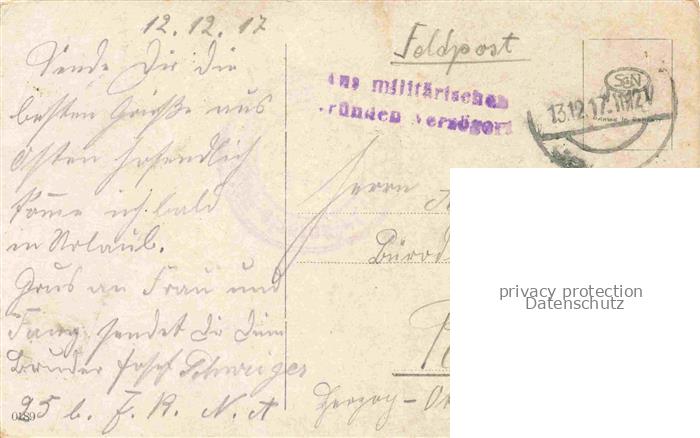 12.12.17
Sende Dir die
besten Grüße aus
Osten hofendlich
komme ich bald
in Urlaub.
Grus an Frau und
sendet Dir Dein
Bruder Josef Schweiger
95 b. F. A. N. A
0189
Feldpost
Aus militärischen
Gründen verzögert
SGN
13.12.17
Herrn
Bürod
Herzog-
privacy protection
Datenschutz